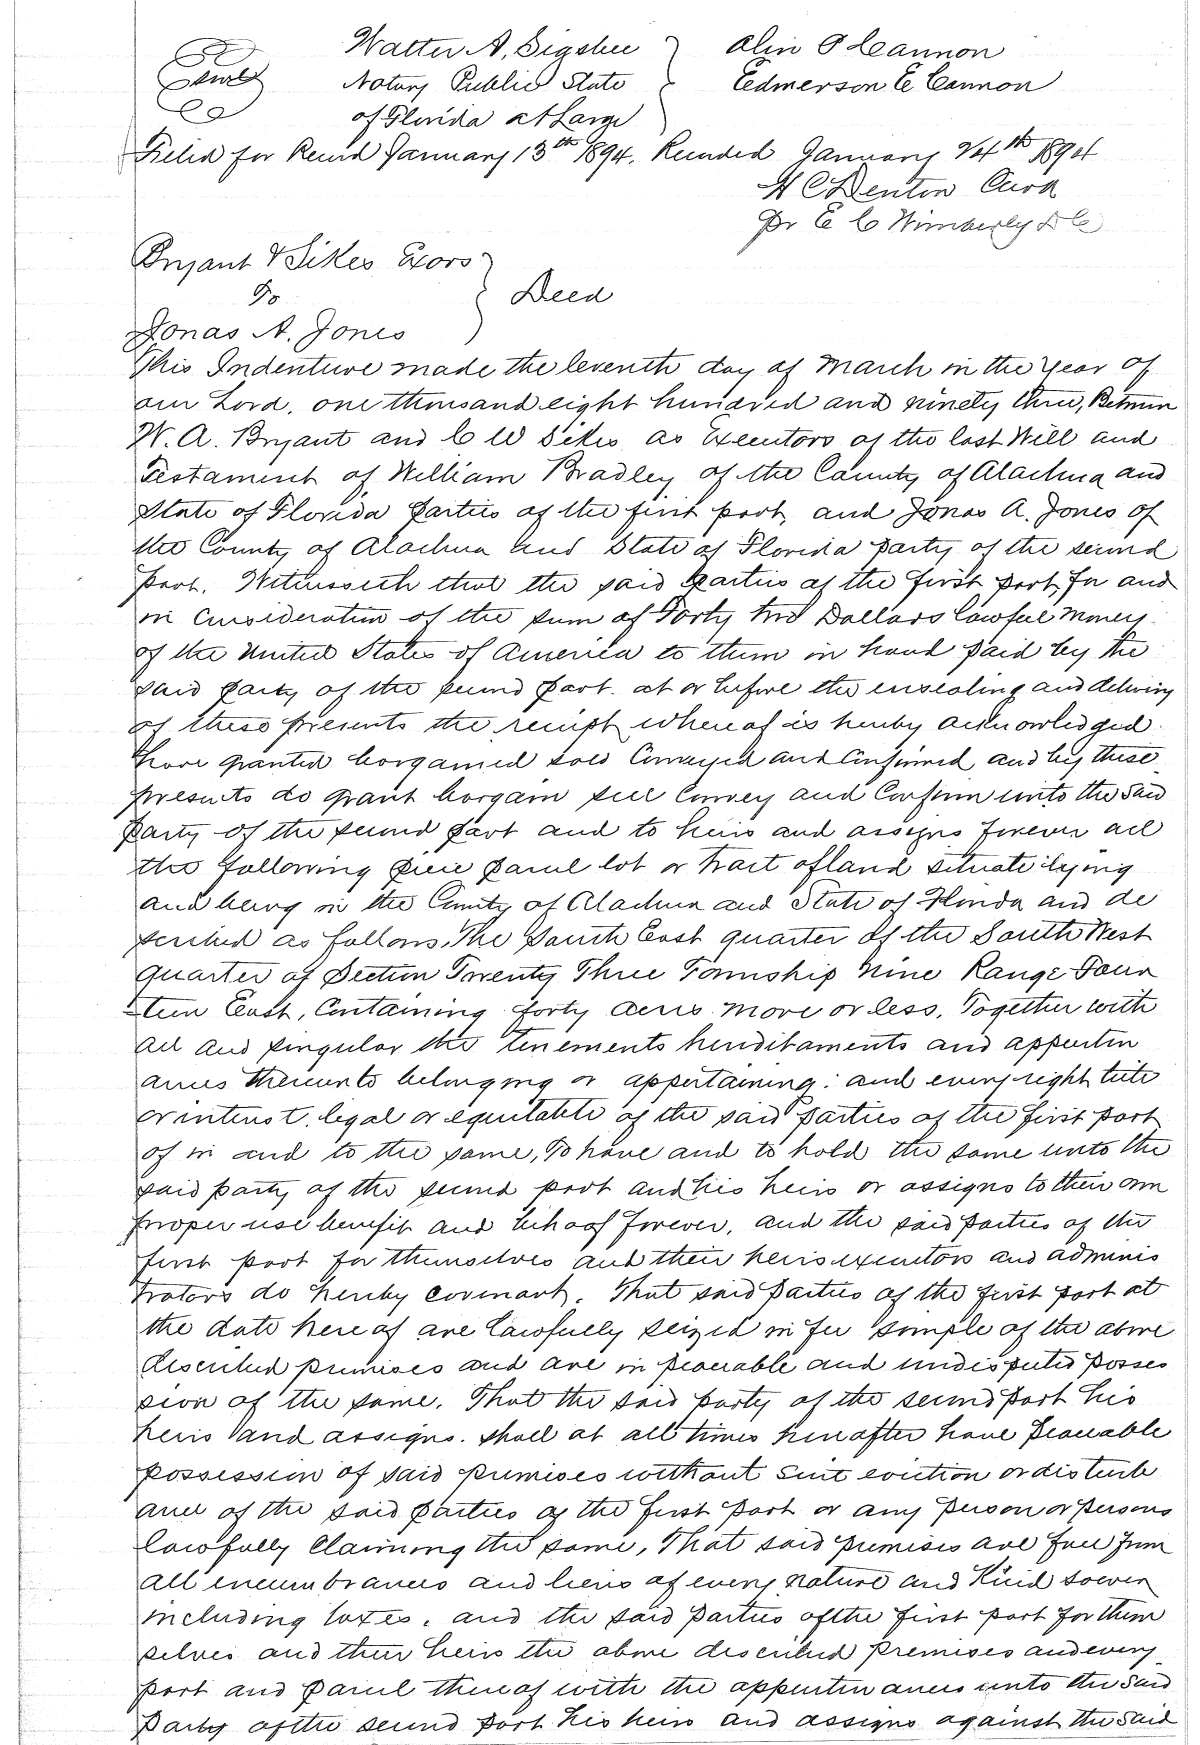 Walter A, Sigsbee } Alin O Cannon
Seal Notary Public State } Edmerson E Cannon
of Florida at Large
Filed for Record January 13th 1894. Recorded January 24th 1894
H C Denton Clerk
Pr E C Wimberly D C
Bryant & Sikes Exors
To } Deed
Jonas A. Jones
This Indenture made the leventh day of March in the Year of
our Lord, one thousand eight hundred and ninety three, Between
W. A. Bryant and C W Sikes as Executors of the last Will and
Testament of William Bradley of the County of Alachua and
State of Florida parties of the first part, and Jonas A. Jones of
the County of Alachua and State of Florida party of the second
part. Witnesseth that the said parties of the first part, for and
in consideration of the sum of Forty two Dollars lawful money
of the United States of America to them in hand paid by the
said party of the second part. at or before the ensealing and delivery
of these presents the receipt whereof is hereby acknowledged
have granted bargained sold Conveyed and Confirmed and by these
presents do grant bargain sell Convey and Confirm unto the said
party of the second part and to heirs and assigns forever all
the following piece parcel lot or tract of land situate lying
and being in the County of Alachua and State of Florida and de
scribed as follows, The South East quarter of the South West
quarter of Section Twenty Three Township Nine Range Four
teen East, Containing forty acres more or less, Together with
all and singular the tenements hereditaments and appurten
ances thereunto belonging or appertaining: and every right title
or interest. legal or equitable of the said parties of the first part
of in and to the same, To have and to hold the same unto the
said party of the second part and his heirs or assigns to their own
proper use benefit and behoof forever, and the said parties of the
first part for themselves and their heirs executors and adminis
trators do hereby covenant. That said parties of the first part at
the date here of are lawfully seized in fee simple of the above
described premises and are in peaceable and undisputed posses
sion of the same. That the said party of the second part his
heirs and assigns. shall at all times hereafter have peaceable
possession of said premises without suit eviction or disturb
ance of the said parties of the first part or any person or persons
lawfully claiming the same, That said premises are free from
all encumbrances and liens of every nature and Kind soever
including taxes. and the said parties of the first part for them
selves and their heirs the above described premises and every
part and parcel thereof with the appurtenances unto the said
Party of the second part his heirs and assigns against the said